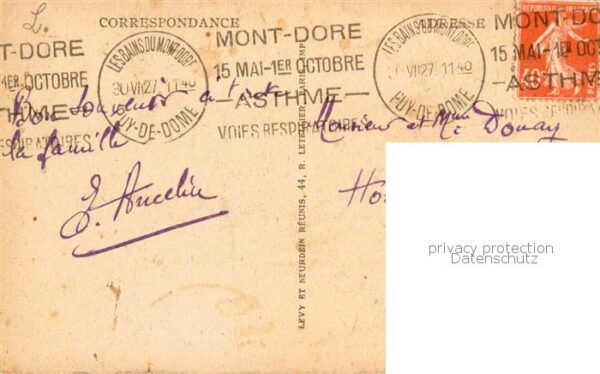 L.
CORRESPONDANCE
ADRESSE
MONT-DORE
15 MAI-1ER OCTOBRE
ASTHME
VOIES RESPIRATOIRES
LES BAINS DU MONT-DORE
30 VII 27 11 40
PUY-DE-DOME
MONT-DORE
15 MAI-1ER OCTOBRE
ASTHME
VOIES RESPIRATOIRES
LES BAINS DU MONT DORE
VII 27 11 40
PUY-DE-DOME
MONT-DORE
15 MAI-1ER OC
ASTHME
REPUBLIQUE FRANCAISE
POSTES
Bon souvenir à toute
la famille
Monsieur et Mme Douay
LEVY ET NEURDEIN RÉUNIS, 44, R. LETELLIER, PARIS
privacy protection
Datenschutz